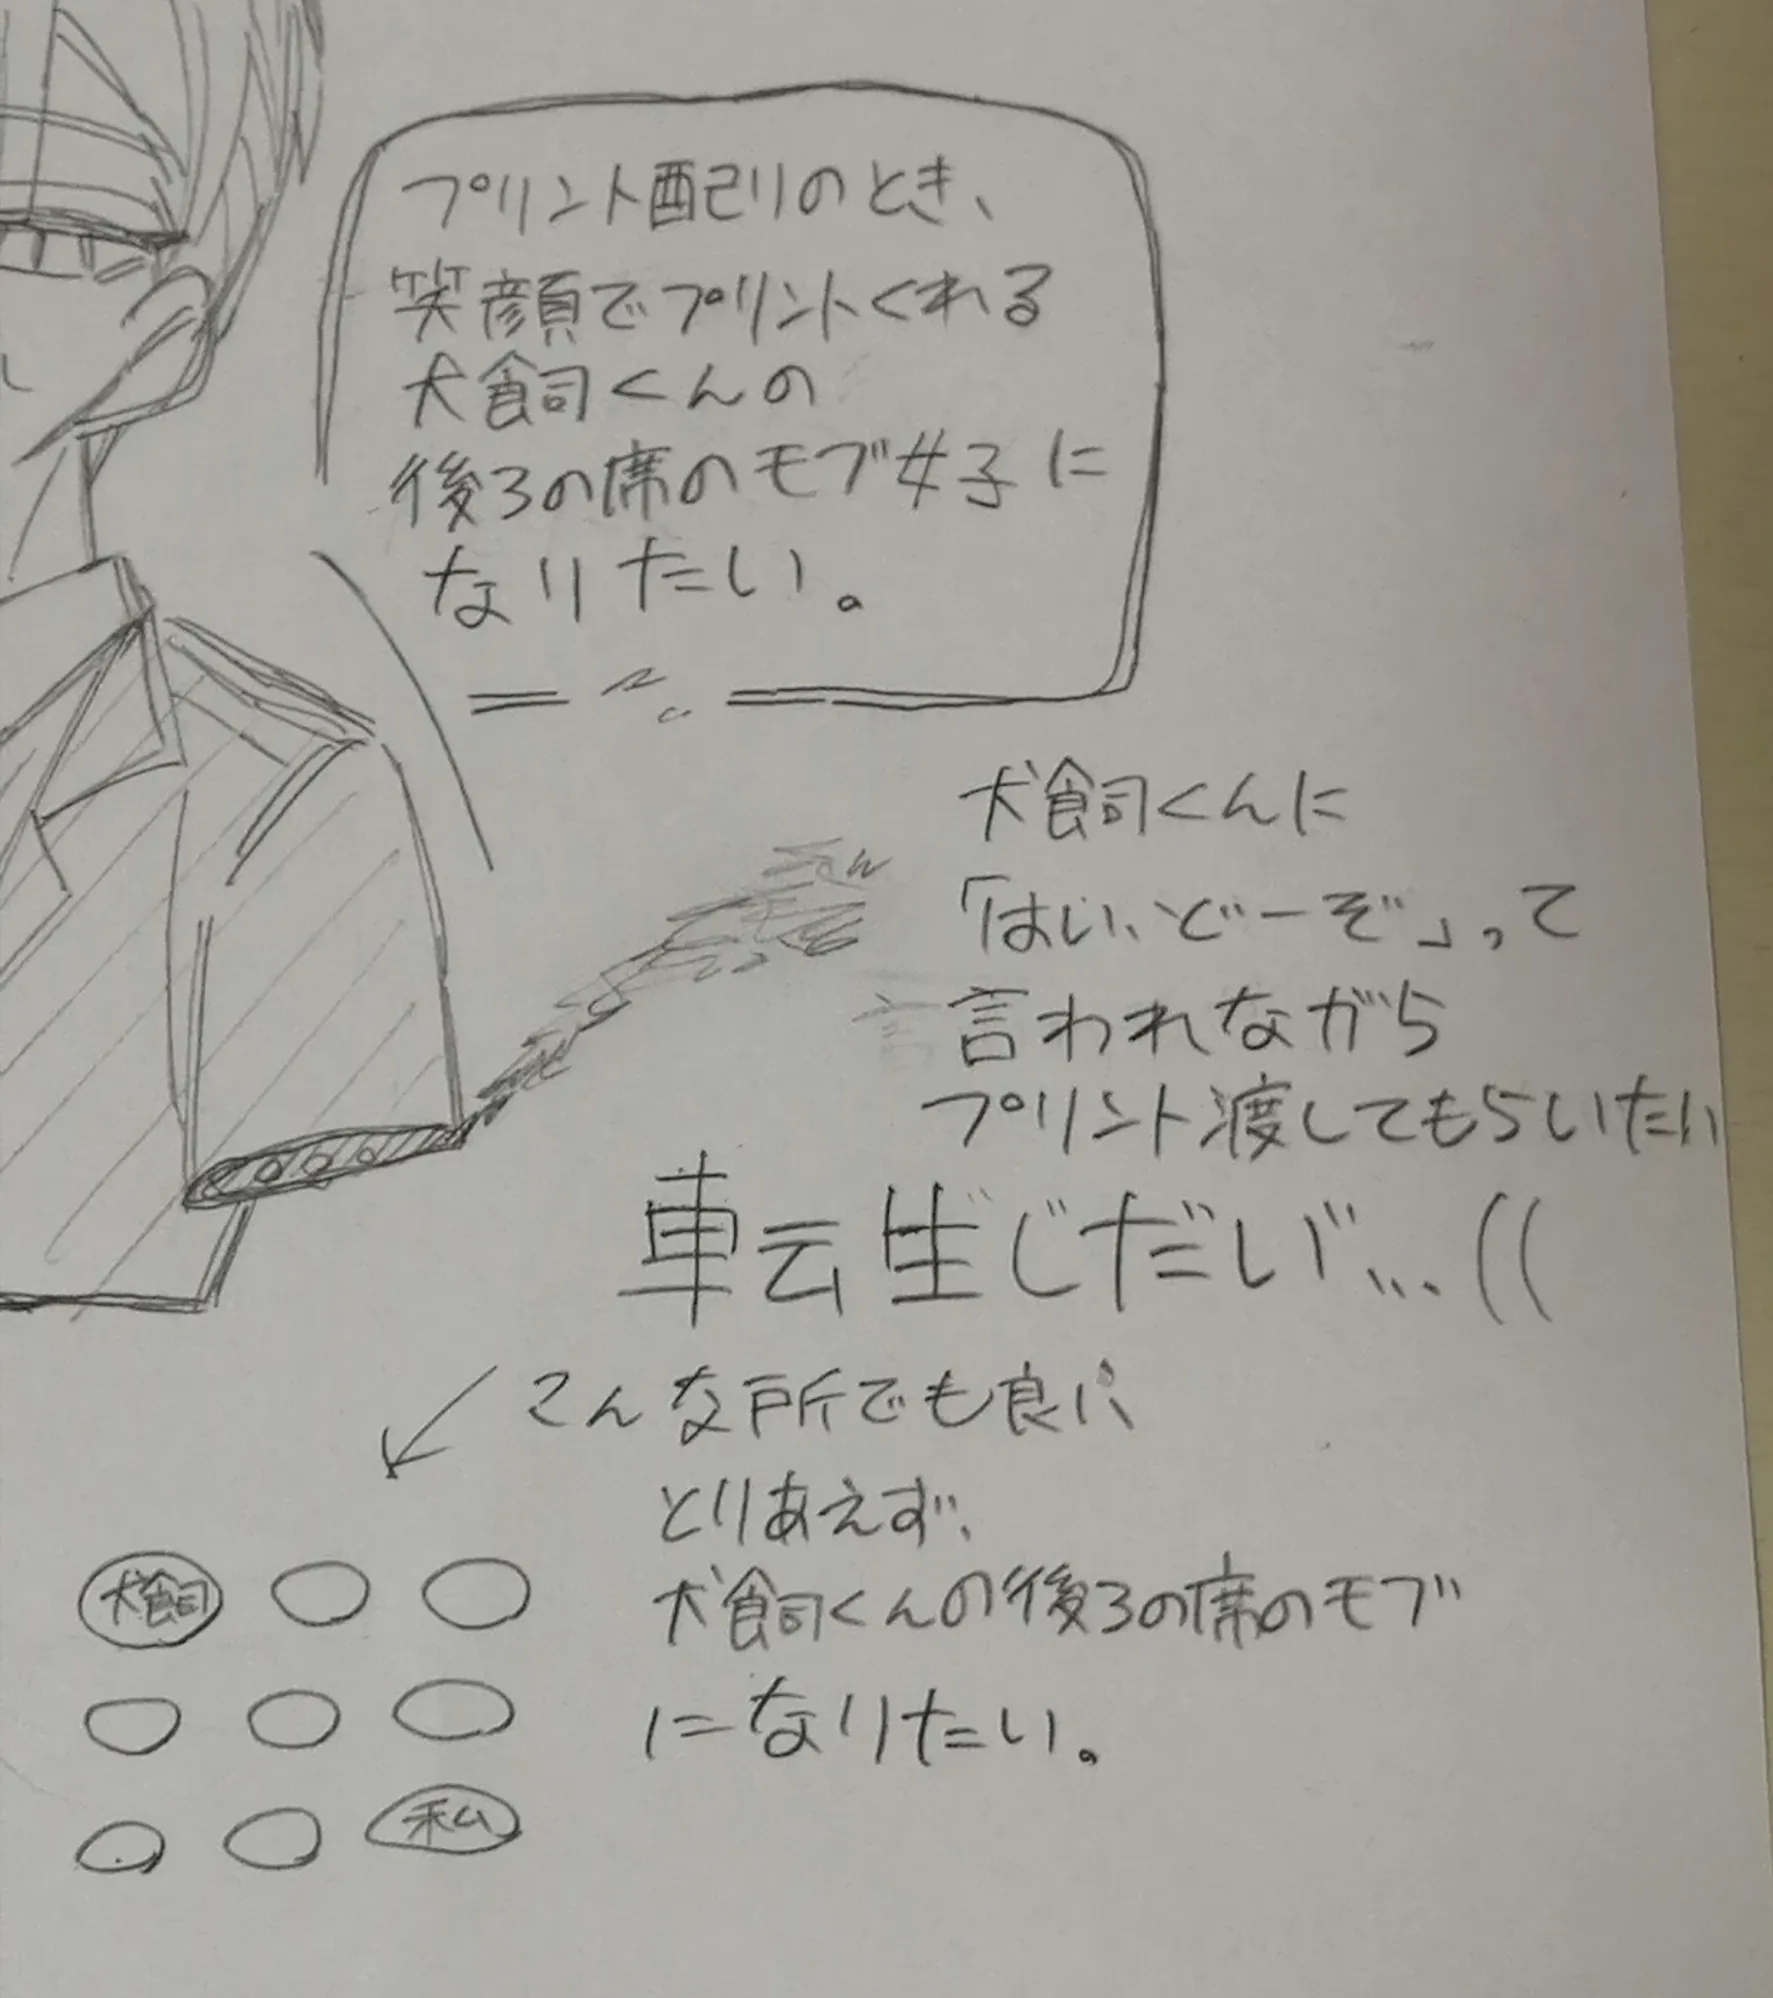 プリント配りのとき、
笑顔でプリントくれる
犬飼くんの
後ろの席のモブ女子に
なりたい。
犬飼くんに
「はい、どーぞ」って
言われながら
プリント渡してもらいたい
転生じだい゛...((
こんな所でも良い
とりあえず、
犬飼くんの後ろの席のモブ
になりたい。
犬飼
私